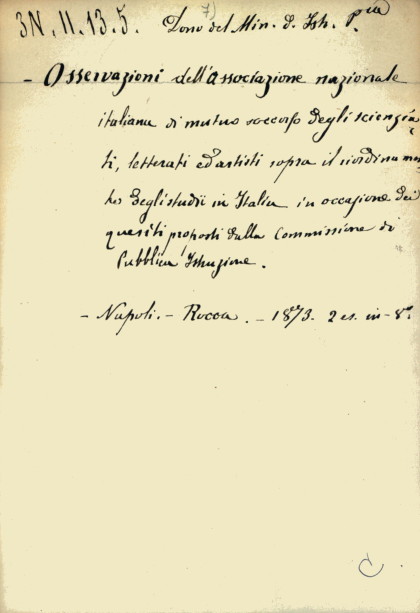 7)
3N. 11. 13. 5. Dono del Min. d. Istr. P.ca
- Osservazioni dell'associazione nazionale
italiana di mutuo soccorso degli scienzia
ti, letterati ed artisti sopra il riordinamen
to degli studii in Italia in occasione dei
quesiti proposti dalla Commissione di
Pubblica Istruzione.
- Napoli. - Rocco. - 1873. 2 es. in - 8.°
C